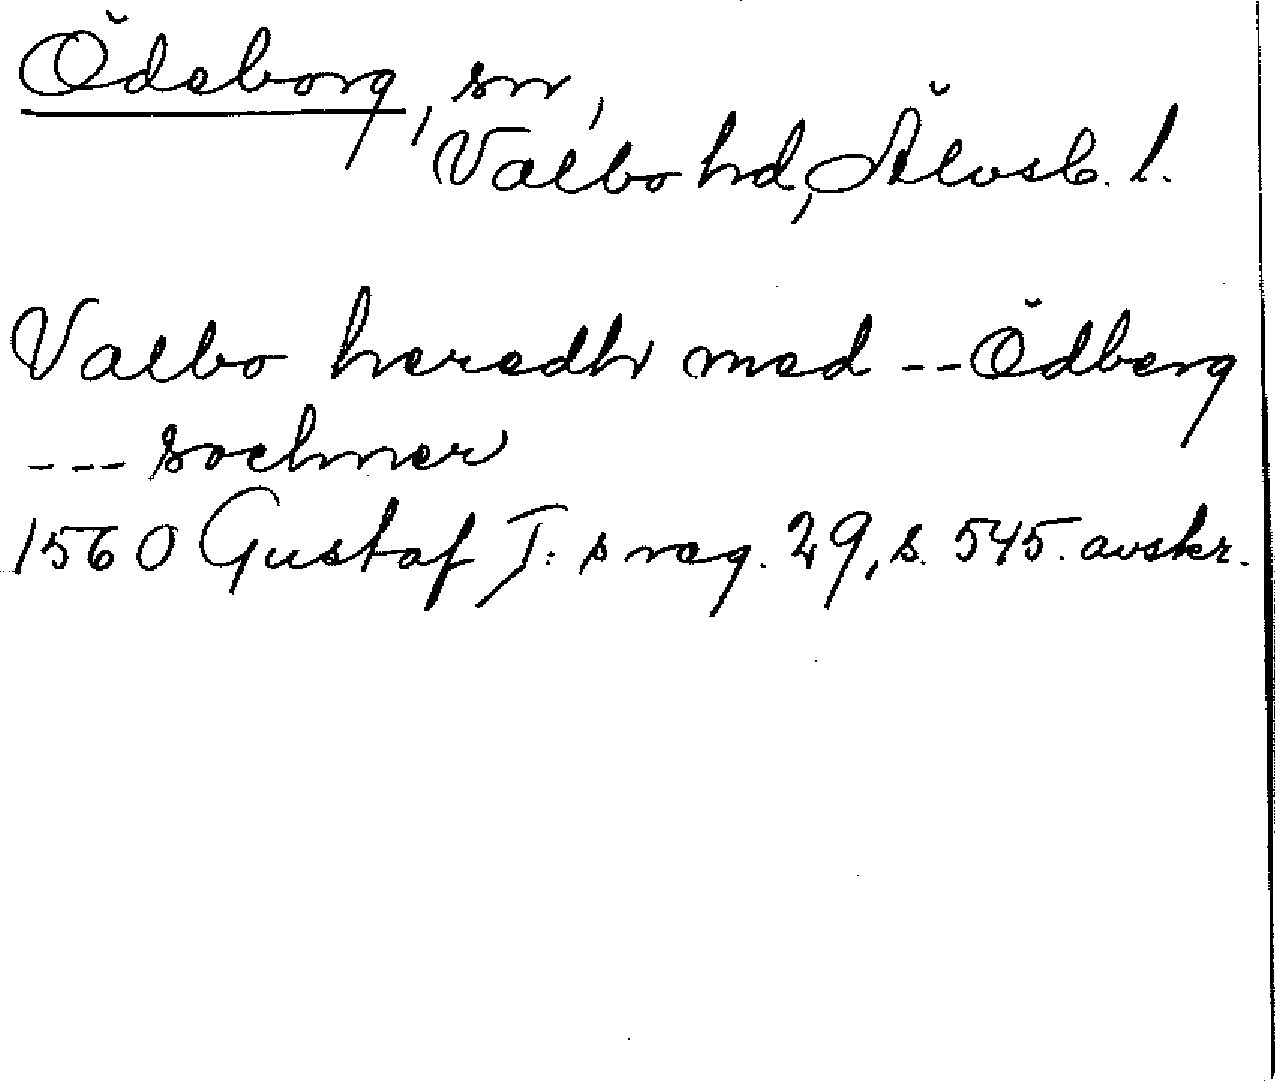 Ödeborg, sn,
Valbo hd, Älvsb. l.
Valbo heredh med -- Ödberg
--- sochner
1560 Gustaf I:s reg. 29, s. 545. avskr.